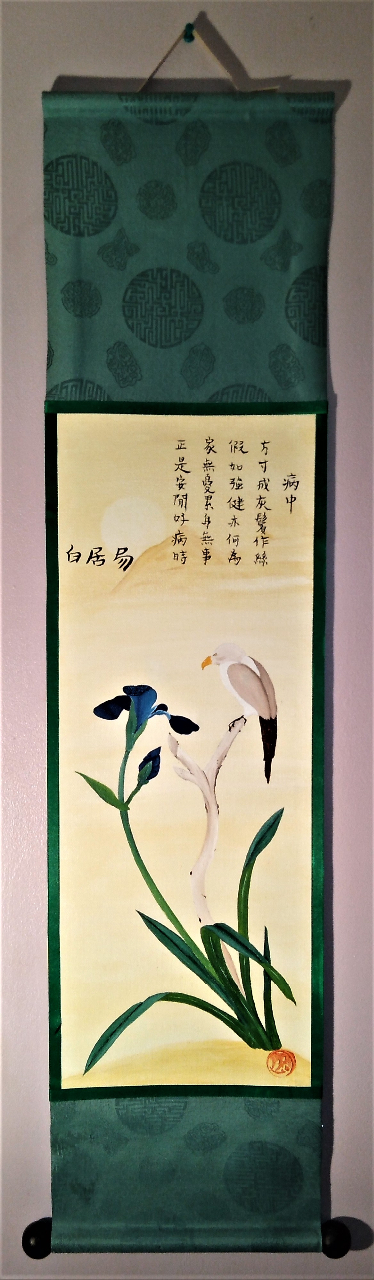 病中
方寸成灰鬢作絲
假如強健亦何為
家無憂累身無事
正是安閒好病時
白居易